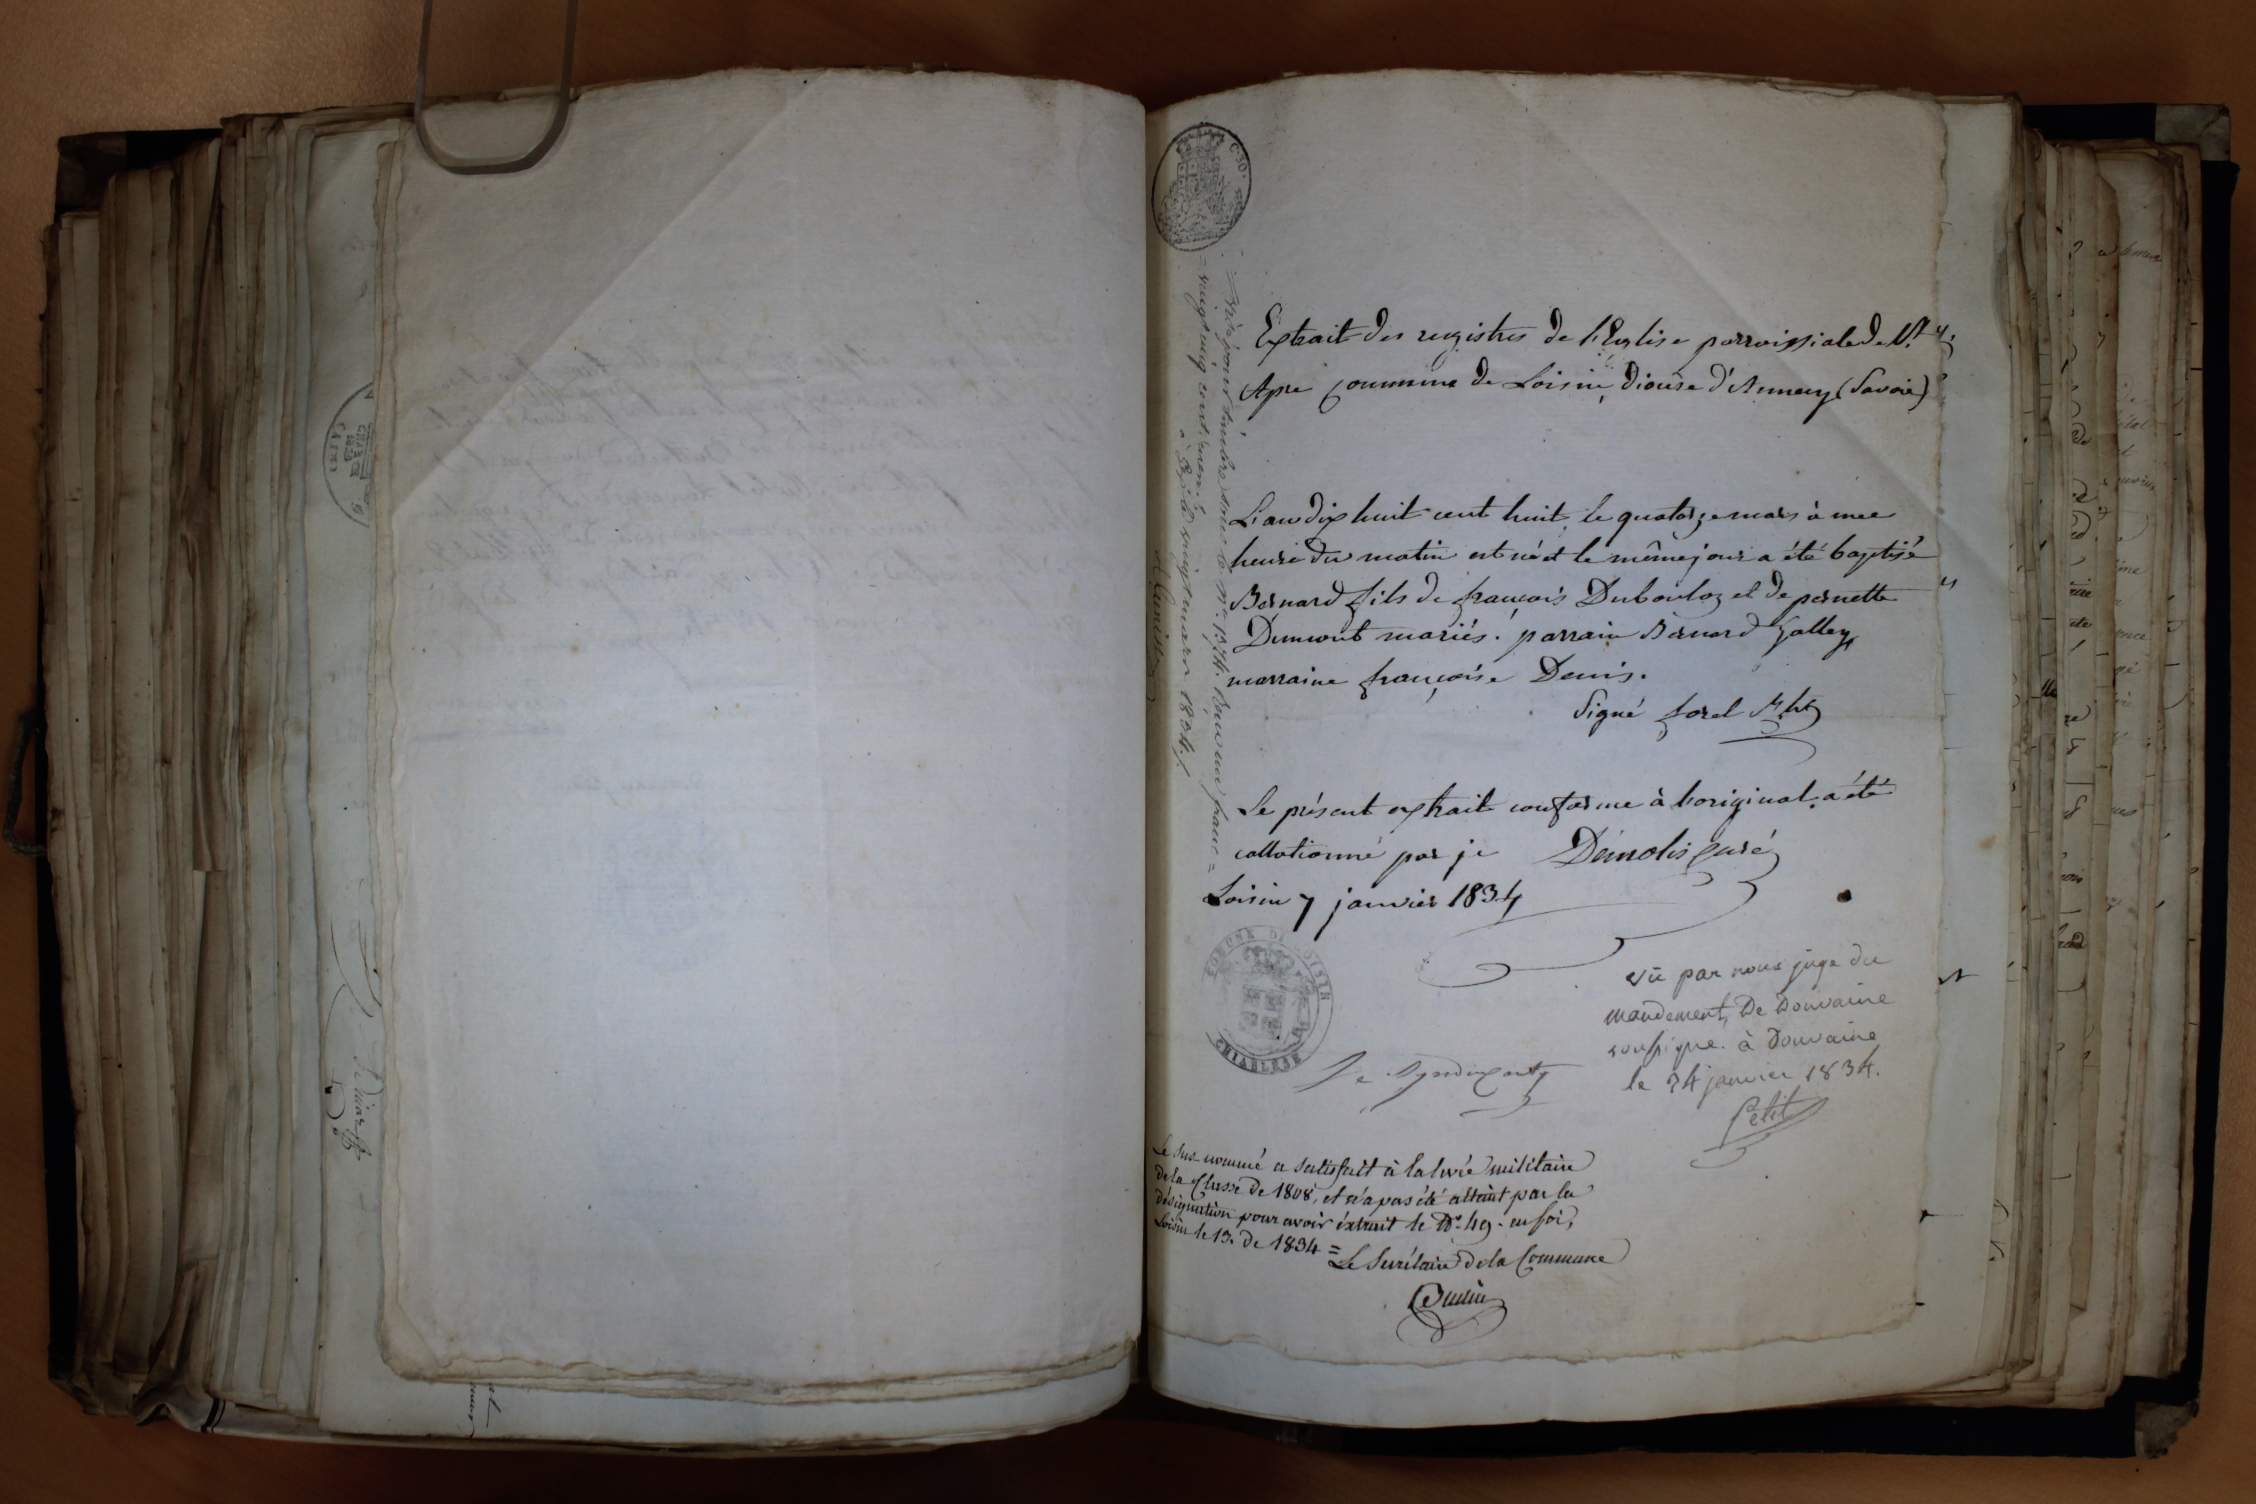 Extrait des registres de l'Eglise parroissiale de St
Apre commune de Loisin, Diocèse d'Annecy (Savoie)
L'an dix huit cent huit, le quatorze mars à une
heure du matin est né et le même jour a été baptisé
Bernard fils de françois Dubouloz et de pernette
Dumont mariés. parrain Bernard Galley,
marraine françoise Denis.
Signé forel
Le présent extrait conforme à l'original a été
collationné par je Démolis Curé
Loisin 7 janvier 1834
Vu par nous juge du
mandement De Douvaine
soussigné. à Douvaine
le 24 janvier 1834.
Petit
COMUNE DI LOISIN
CHIABLESE
Le Syndic
Le sus nommé a satisfait à la levée militaire
de la Classe de 1808, et n'a pas été atteint par la
désignation pour avoir éxtrait le N°. 49. en foi,
Loisin le 13. de 1834 =
Le Secrétaire de la Commune
Visé pour timbre sous le N° 1374. Reçu un franc =
= vingt cinq cent. mes à
Gex le vingt mars 1834./.
C. 50